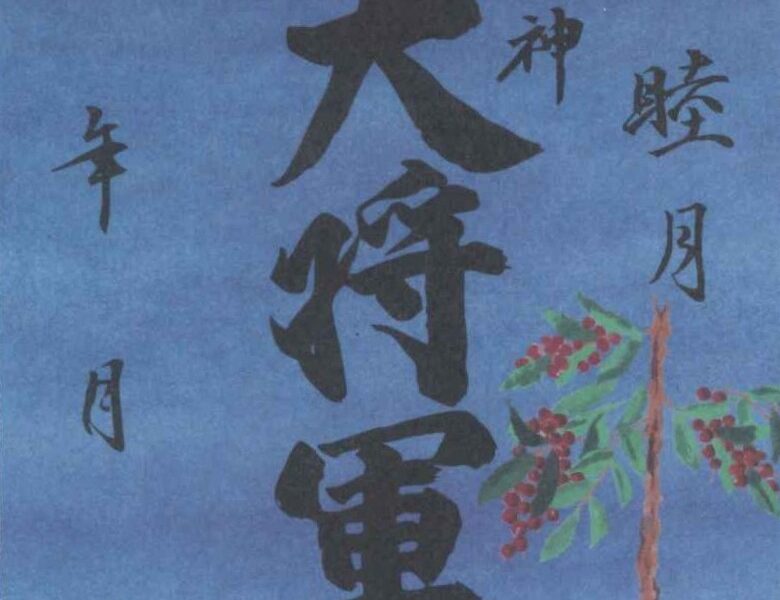 睦月
神
大将軍
年 月